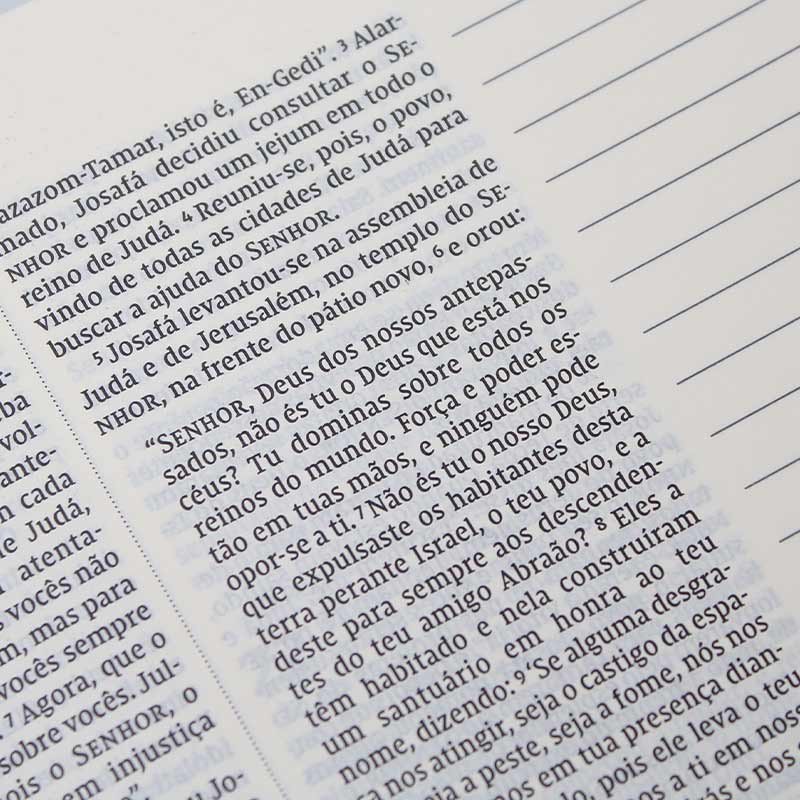 ba
vol-
ante-
cada
de Judá,
atenta-
vocês não
mas para
vocês sempre
7 Agora, que o
sobre vocês. Jul-
pois o SENHOR, o
em injustiça
azazom-Tamar, isto é, En-Gedi”. 3 Alar-
mado, Josafá decidiu consultar o SE-
NHOR e proclamou um jejum em todo o
reino de Judá. 4 Reuniu-se, pois, o povo,
vindo de todas as cidades de Judá para
buscar a ajuda do SENHOR.
5 Josafá levantou-se na assembleia de
Judá e de Jerusalém, no templo do SE-
NHOR, na frente do pátio novo, 6 e orou:
“SENHOR, Deus dos nossos antepas-
sados, não és tu o Deus que está nos
céus? Tu dominas sobre todos os
reinos do mundo. Força e poder es-
tão em tuas mãos, e ninguém pode
opor-se a ti. 7 Não és tu o nosso Deus,
que expulsaste os habitantes desta
terra perante Israel, o teu povo, e a
deste para sempre aos descenden-
tes do teu amigo Abraão? 8 Eles a
têm habitado e nela construíram
um santuário em honra ao teu
nome, dizendo: 9 ‘Se alguma desgra-
ça nos atingir, seja o castigo da espa-
seja a peste, seja a fome, nós nos
em tua presença dian-
pois ele leva o teu
a ti em nosso
e nos